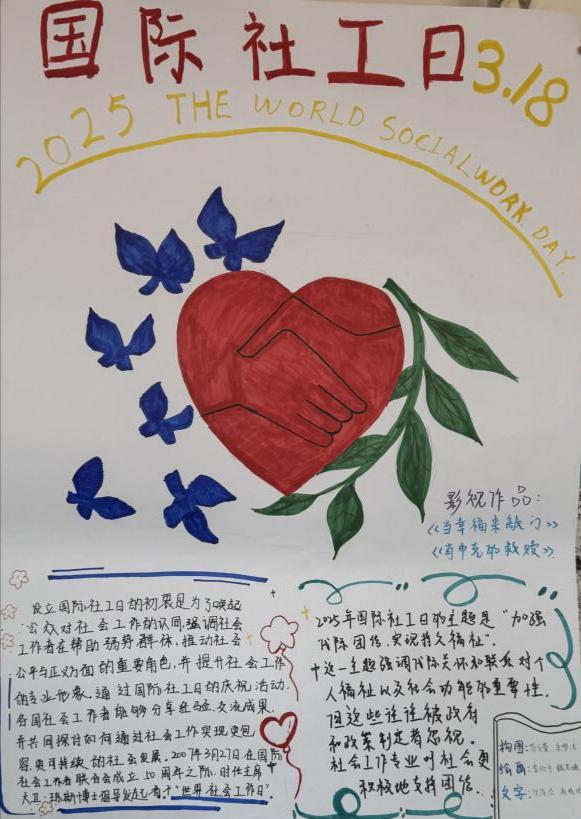 国际社工日3.18
2025 THE WORLD SOCIALWORK DAY.
影视作品:
《当幸福来敲门》
《肖申克的救赎》
设立国际社工日的初衷是为了唤起
公众对社会工作的认同,强调社会
工作者在帮助弱势群体、推动社会
公平与正义方面的重要角色,并提升社会工作
的专业形象。通过国际社工日的庆祝活动,
各国社会工作者能够分享经验、交流成果,
并共同探讨如何通过社会工作实现更包
容、更可持续的社会发展。2007年3月27日在国际
社会工作者联合会成立50周年之际,时任主席
大卫·琼斯博士倡导发起了首个"世界社会工作日"。
2025年国际社工日的主题是"加强
代际团结,实现持久福祉".
这一主题强调代际关怀和联系对个
人福祉以及社会功能的重要性,
但这些往往被政府
和政策制定者忽视。
社会工作专业呼社会更
积极地支持团结.
构图:
绘画:
文字: